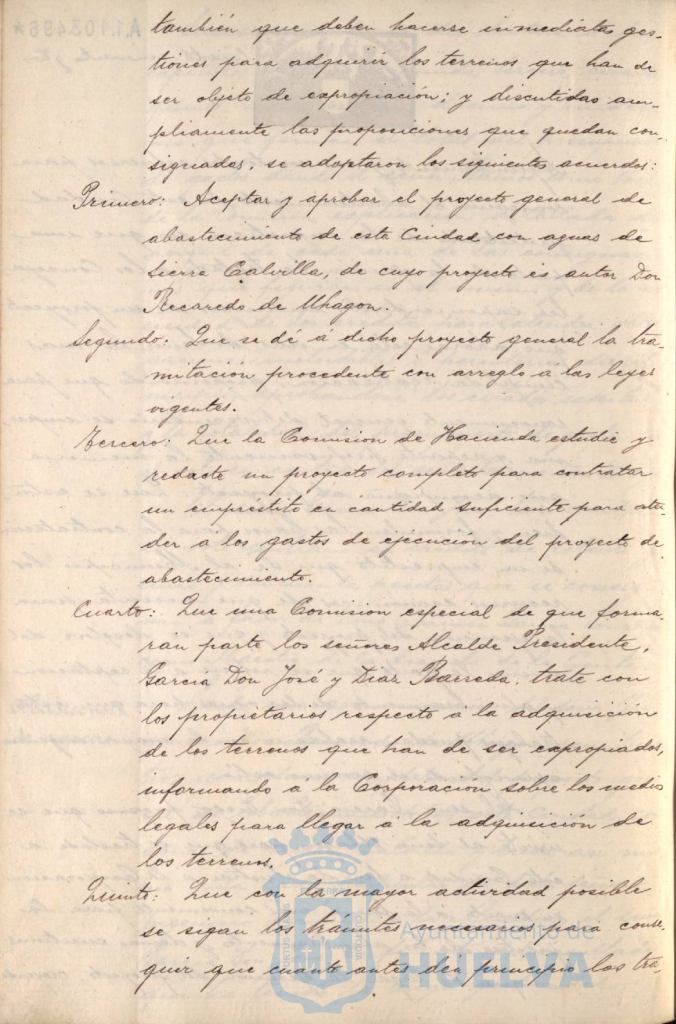 también que deben hacerse inmediatas ges-
tiones para adquirir los terrenos que han de
ser objeto de expropiación; y discutidas am-
pliamente las proposiciones que quedan con-
signadas, se adoptaron los siguientes acuerdos:
Primero: Aceptar y aprobar el proyecto general de
abastecimiento de esta Ciudad con aguas de
Sierra Calvilla, de cuyo proyecto es autor Don
Recaredo de Uhagon.
Segundo: Que se dé á dicho proyecto general la tra-
mitación procedente con arreglo á las leyes
vigentes.
Tercero: Que la Comision de Hacienda estudie y
redacte un proyecto completo para contratar
un empréstito en cantidad suficiente para aten-
der á los gastos de ejecución del proyecto de
abastecimiento.
Cuarto: Que una Comision especial de que forma-
rán parte los señores Alcalde Presidente,
García Don José y Diaz Barreda, trate con
los propietarios respecto á la adquisición
de los terrenos que han de ser expropiados,
informando á la Corporación sobre los medios
legales para llegar á la adquisición de
los terrenos.
Quinto: Que con la mayor actividad posible
se sigan los trámites necesarios para conse-
guir que cuanto antes den principio los tra-
A.1.103496*
Ayuntamiento de
HUELVA